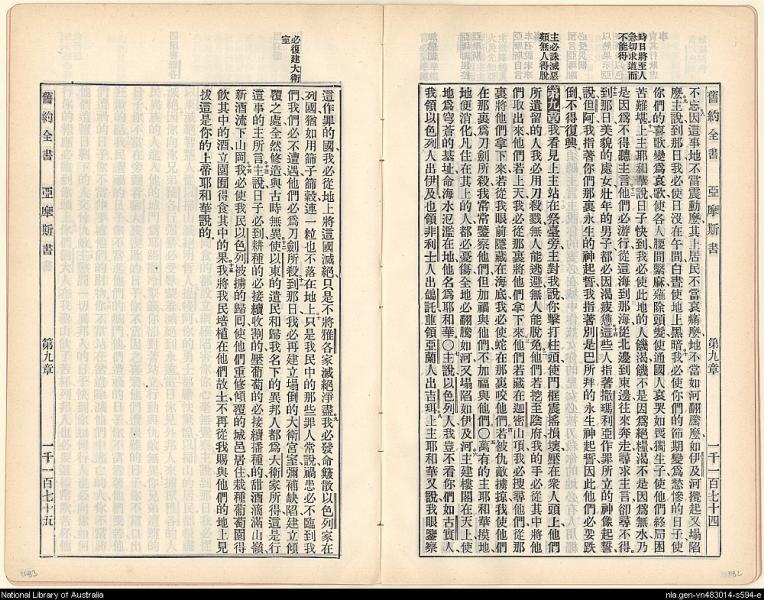 舊約全書 亞摩斯書 第九章 一千一百七十四
時日將至人
急切求道而
不能得
主必誅滅惡
類無人得脫
不忘因這事地不當震動麼其上居民不當哀痛麼地不當如河翻騰麼如伊及河攪起又塌陷
麼主說到那日我必使日沒在午間白晝使地上黑暗我必使你們的節期變為愁慘的日子使
你們的喜歌變為哀歌使各人腰間繫麻薙除頭髮使通國人哀哭如喪獨生子使他們終局困
苦難堪上主耶和華說日子快到我必使此地的人饑渴饑不是因為絕糧渴不是因為無水乃
是因為不得聽主言他們必游行從這海到那海從北邊到東邊往來奔走尋求主言卻尋不得
到那日美貌的處女壯年的男子都必因渴疲憊這些人指著撒瑪利亞作罪所立的神像起誓
說但阿我指著你們那裏永生的神起誓我指著別是巴所拜的永生神起誓因此他們必要跌
倒不得復興
第九章 我看見上主站在祭臺旁主對我說你擊打柱頭使門框震搖損壞壓在眾人頭上他們
所遺留的人我必用刀殺戮無人能逃避無人能脫免他們若挖至陰府我的手必從其中將他
們取出來他們若上天我必從那裏將他們拿下來他們若藏在迦密山頂我必搜尋他們從那
裏將他們拿下來若從我眼前隱藏在海底我必使蛇在那裏咬他們若被仇敵擄掠我使他們
在那裏為刀劍所殺我常常鑒察他們但加禍與他們不加福與他們〇萬有的主耶和華摸地
地便消化凡住在其上的人都必憂傷全地必翻騰如河又塌陷如伊及河主建樓閣在天上使
地為穹蒼的基址命海水氾濫在地他名為耶和華〇主說以色列人我豈不看你們如古實人
我領以色列人出伊及也領非利士人出佁託重領亞蘭人出吉珥上主耶和華又說我眼鑒察
必復建大衛
室
這作罪的國我必從地上將這國滅絕只是不將雅各家滅絕淨盡我必發命簸散以色列家在
列國猶如用篩子篩穀連一粒也不落在地上只是我民中的那些罪人常說禍患必不臨到我
們我們必不遭遇他們必為刀劍所殺到那日我必再建立塌倒的大衛宮室彌補缺陷建立傾
覆之處全然修造與古時無異使以東的遺民和歸我名下的異邦人都為大衛家所得這是行
這事的主所言主說日子必到耕種的必接續收割的壓葡萄的必接續播種的甜酒滴滿山嶺
新酒流下山岡我必使我民以色列被擄的歸囘使他們重修傾覆的城邑居住栽種葡萄園得
飲其中的酒立園囿得食其中的果我將我民培植在他們故土不再從我賜與他們的地上見
拔這是你的上帝耶和華說的
舊約全書 亞摩斯書 第九章 一千一百七十五
National Library of Australia
nla.gen-vn483014-s594-e